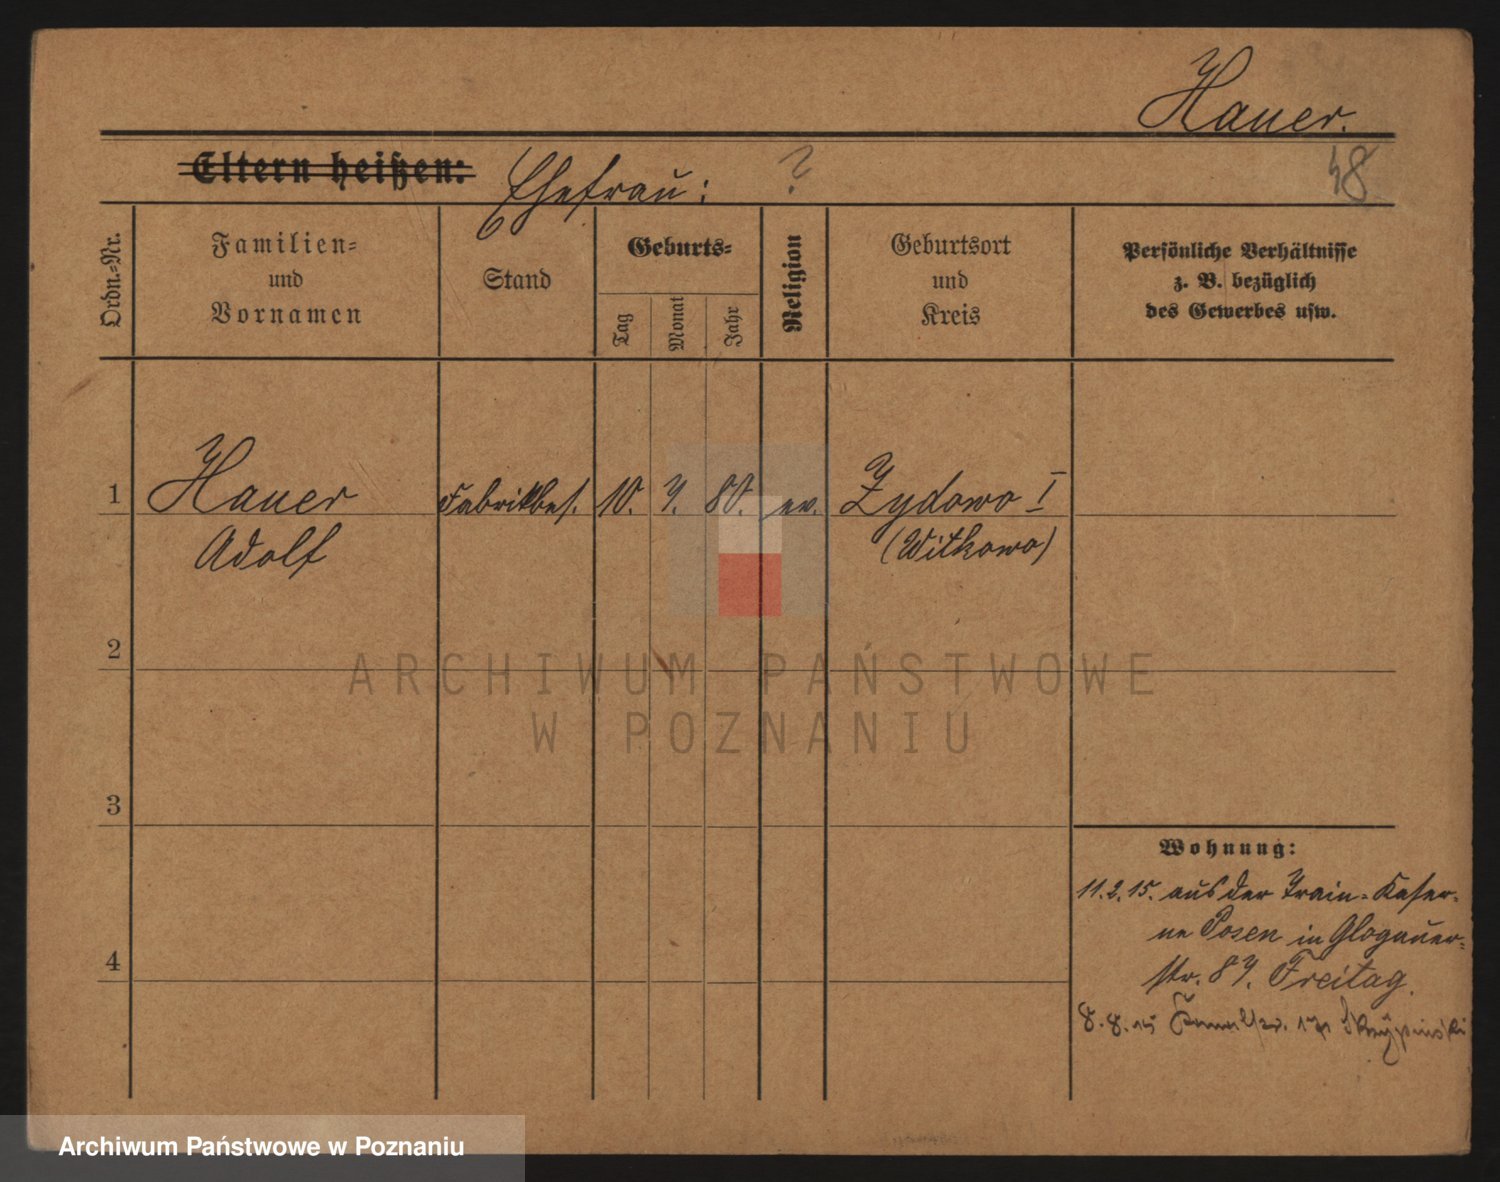 Hauer.
Eltern heißen: Ehefrau: ?
48
Ordn.-Nr.
Familien-
und
Vornamen
Stand
Geburts-
Tag
Monat
Jahr
Religion
Geburtsort
und
Kreis
Persönliche Verhältnisse
z. B. bezüglich
des Gewerbes usw.
1 Hauer Fabrikbes. 10. 7. 80. ev. Zydowo I
Adolf (Witkowo)
2
3
4
Wohnung:
11.2.15. aus der Train-Kaser-
ne Posen in Glogauer-
str. 87. Freitag.
8.8.15 Skrzypinski
ARCHIWUM PAŃSTWOWE
W POZNANIU
Archiwum Państwowe w Poznaniu